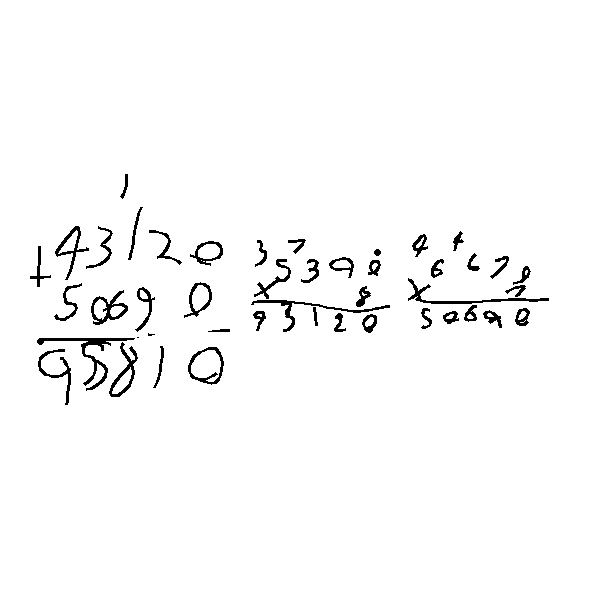 1
43120
+50690
95810
3 7
5390
× 8
93120
4 4
6670
× 7
50690